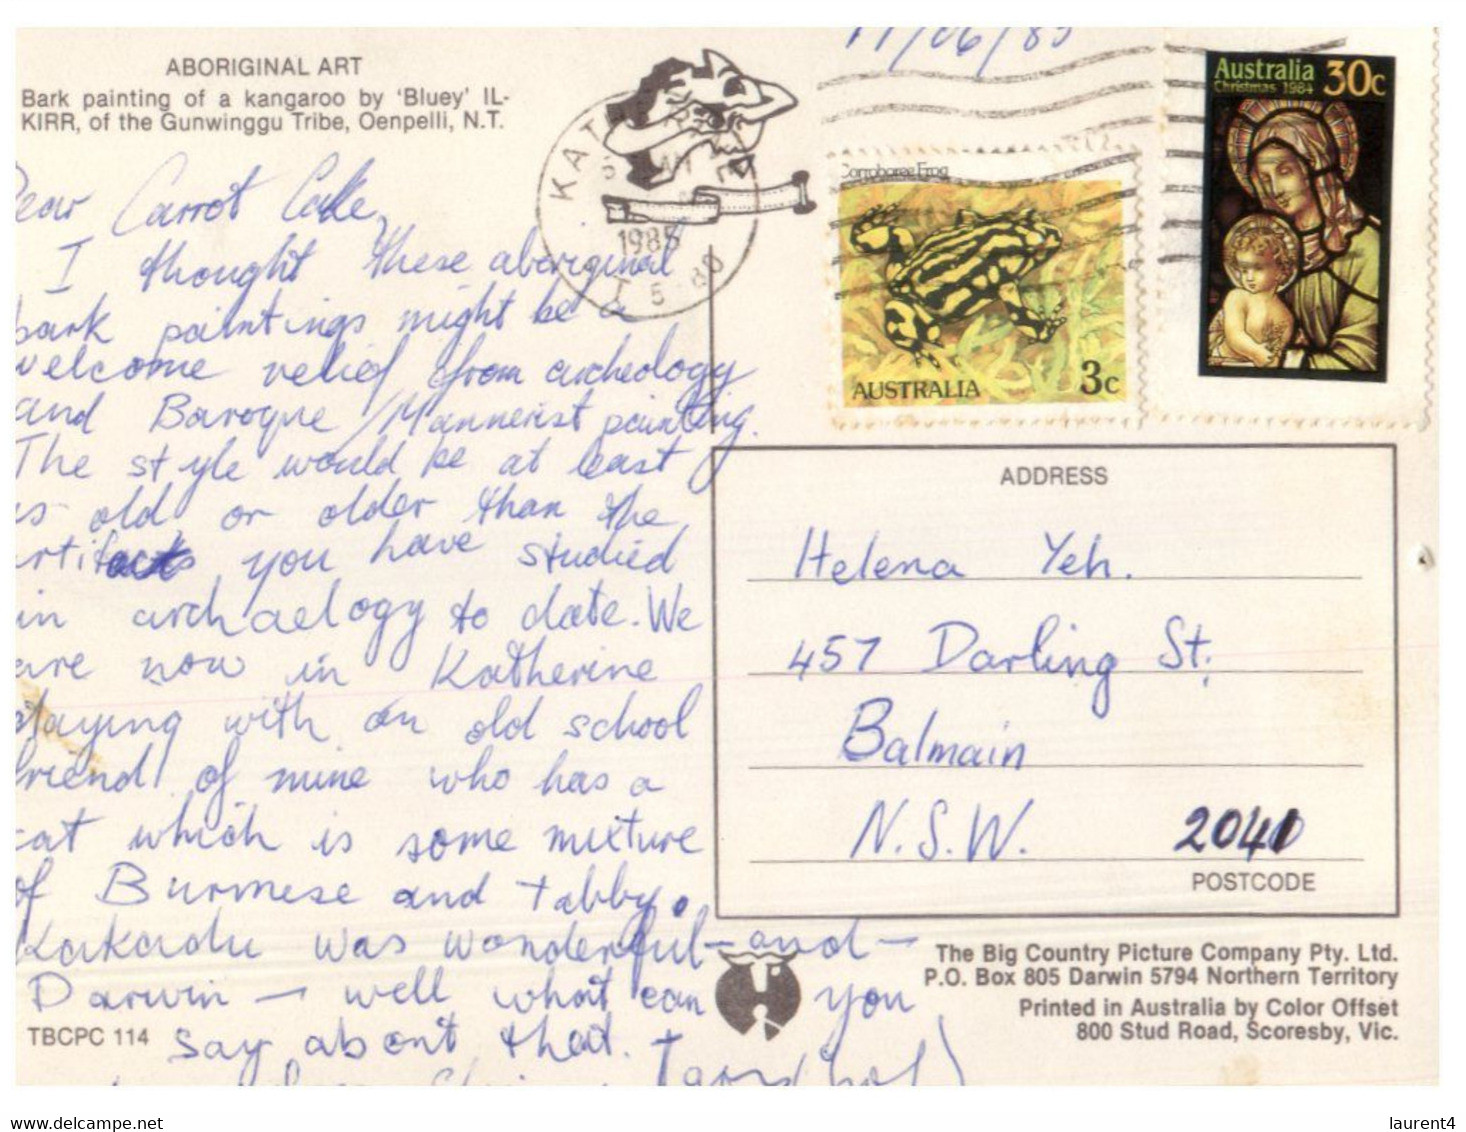 11/06/85
ABORIGINAL ART
Bark painting of a kangaroo by 'Bluey' IL-
KIRR, of the Gunwinggu Tribe, Oenpelli, N.T.
ear Carrot Cake,
I thought these aboriginal
bark paintings might be a
welcome relief from archeology
and Baroque/Mannerist painting.
The style would be at least
as old or older than the
artifacts you have studied
in archaelogy to date. We
are now in Katherine
staying with an old school
friend of mine who has a
cat which is some mixture
of Burmese and tabby.
Kakadu was wonderful - and -
Darwin - well what can you
say about that.
TBCPC 114
KAT
1985
5
Corroboree Frog
AUSTRALIA 3c
Australia 30c
Christmas 1984
ADDRESS
Helena Yeh.
457 Darling St.
Balmain
N.S.W. 2041
POSTCODE
The Big Country Picture Company Pty. Ltd.
P.O. Box 805 Darwin 5794 Northern Territory
Printed in Australia by Color Offset
800 Stud Road, Scoresby, Vic.
laurent4